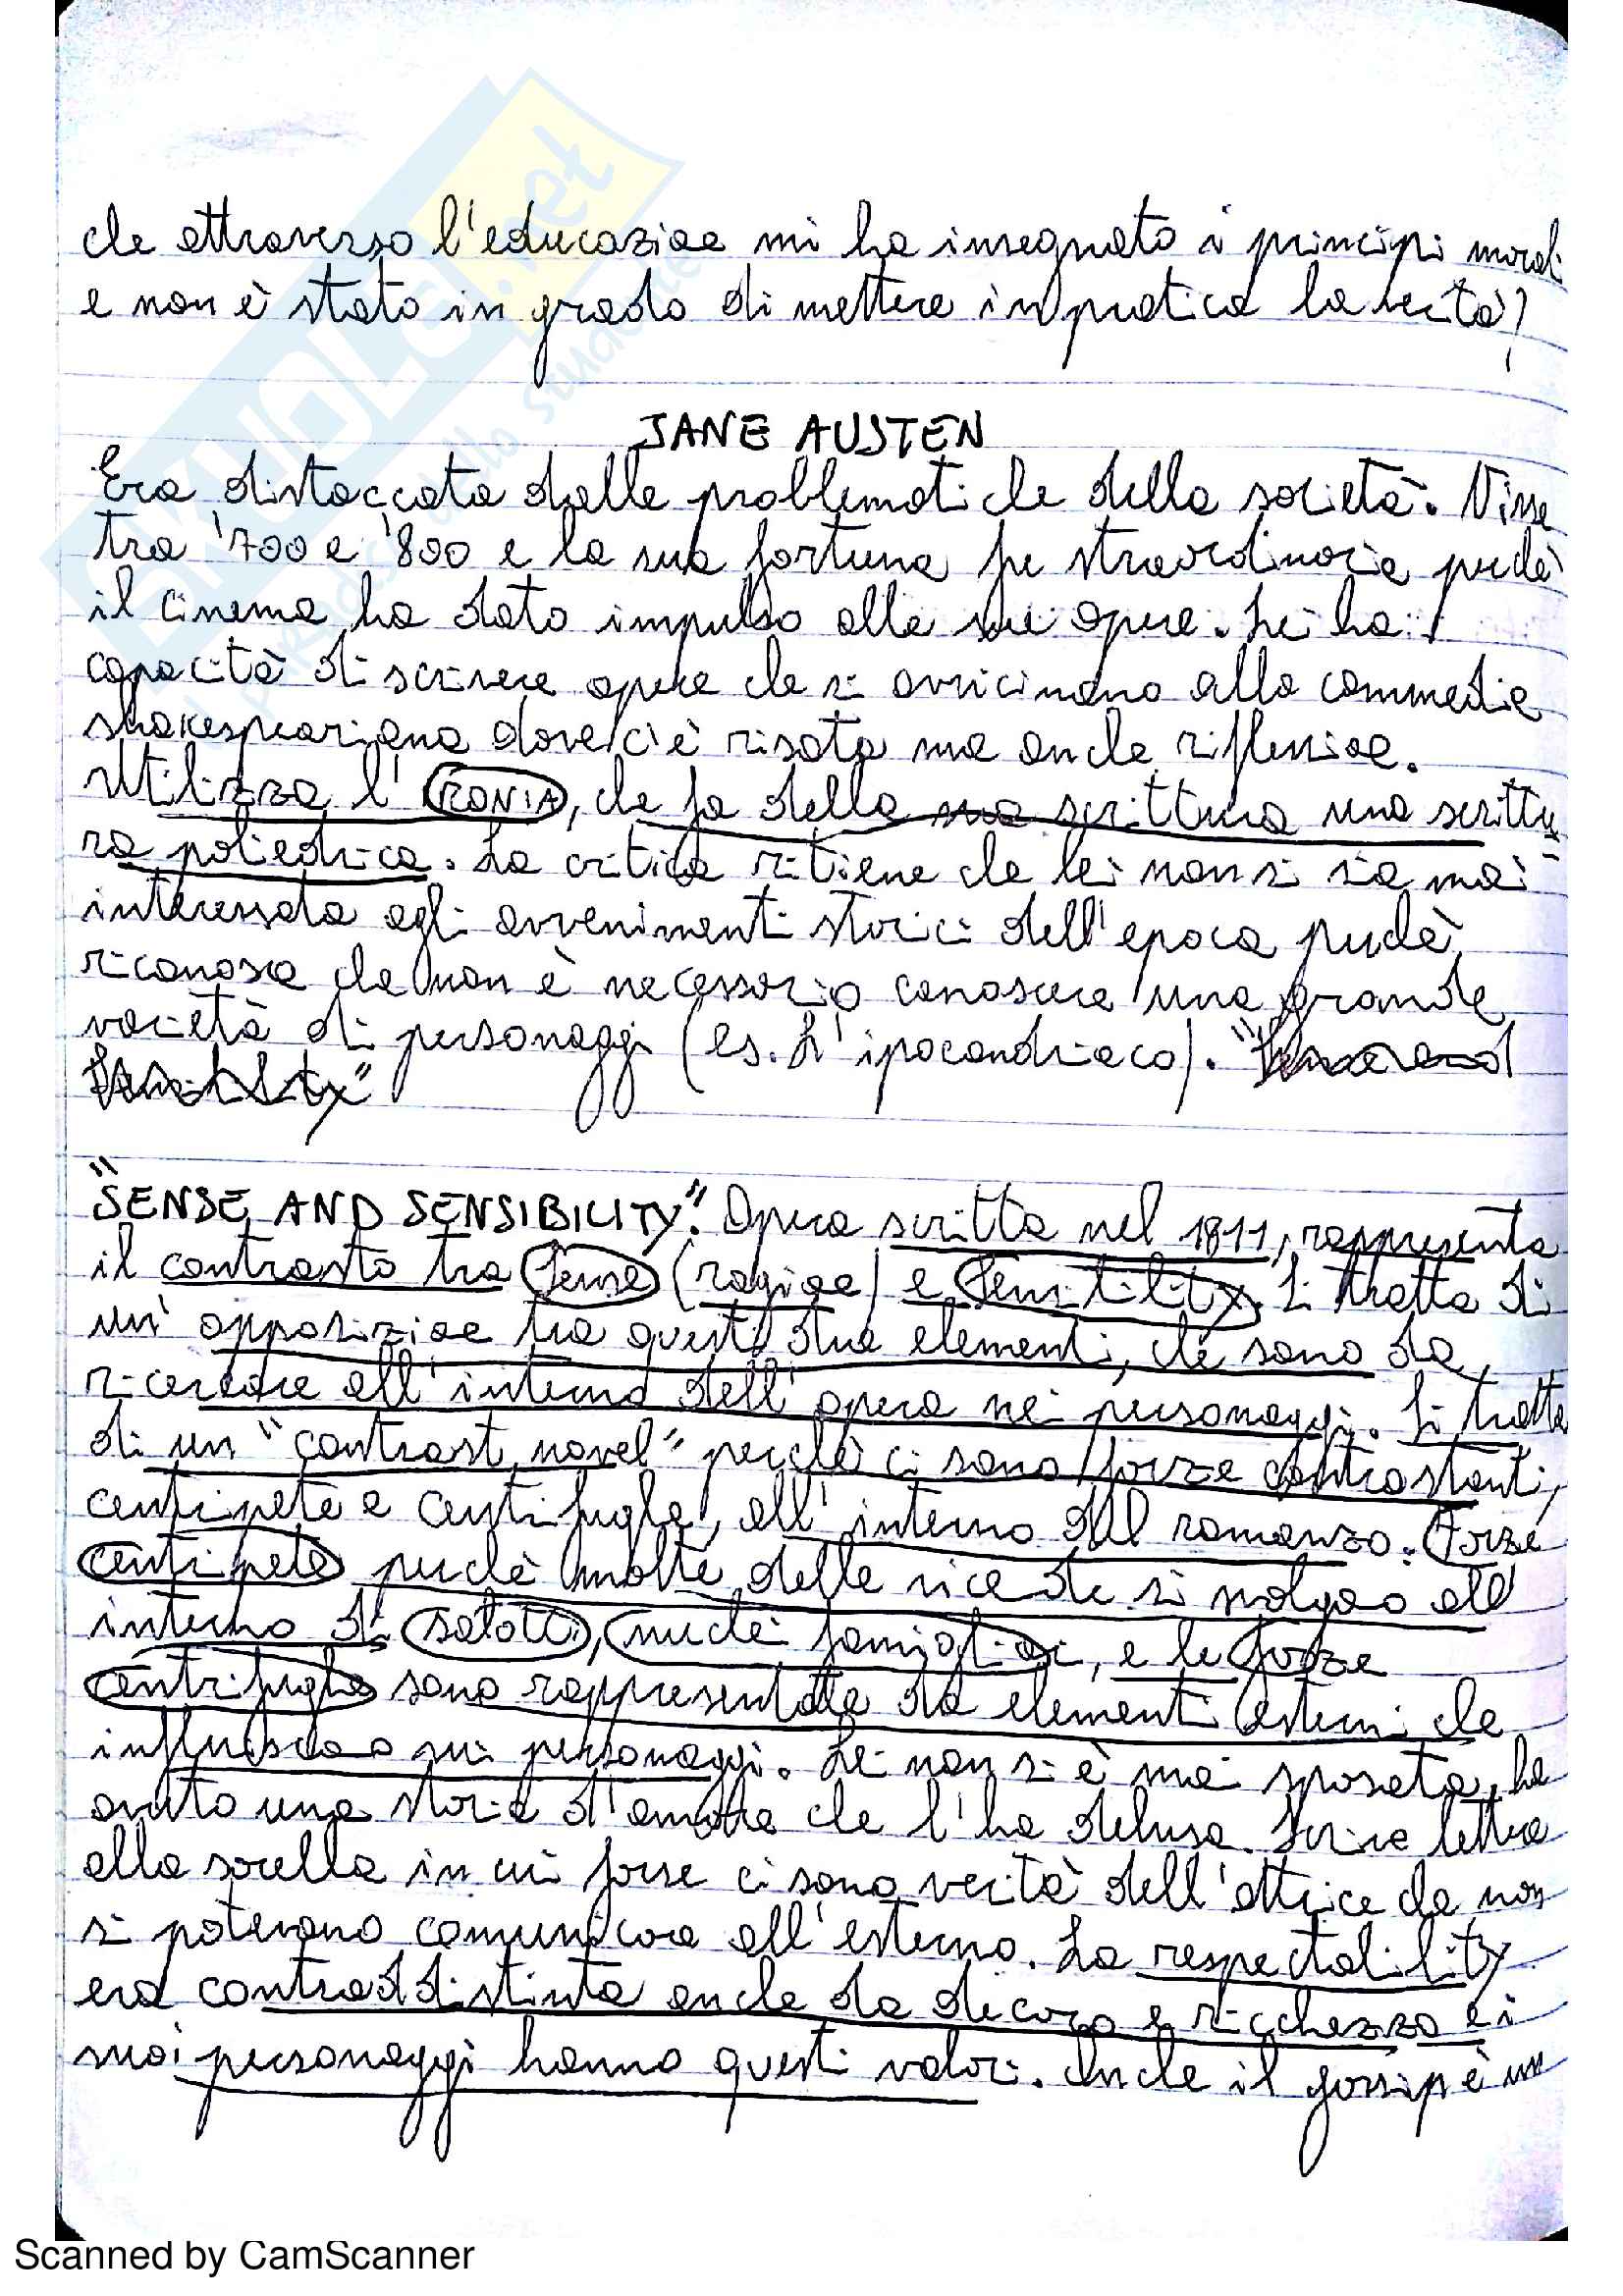 che attraverso l'educazioe mi ha insegnato i principi morali
e non è stato in grado di mettere in pratica la verità)
JANE AUSTEN
Era distaccata dalle problematiche della società. Visse
tra '700 e '800 e la sua fortuna fu straordinaria perchè
il cinema ha dato impulso alle sue opere. Lei ha
capacità di scrivere opere che si avvicinano alla commedia
shakespeariana dove c'è risata ma anche riflessioe.
Utilizza l'IRONIA, che fa della sua scrittura una scrittu
ra poliedrica. La critica ritiene che lei non si sia mai
interessata agli avvenimenti storici dell'epoca perchè
riconosce che non è necessario conoscere una grande
varietà di personaggi (es. L'ipocondriaco). "Sense and
Sensibility"
"SENSE AND SENSIBILITY". Opera scritta nel 1811, rappresenta
il contrasto tra Sense (ragioe) e Sensibility. Si tratta di
un'opposizioe tra questi due elementi, che sono da
ricercare all'interno dell'opera nei personaggi. Si tratta
di un "contrast novel" perchè ci sono forze contrastanti,
centripete e centrifughe, all'interno del romanzo. Forze
centripete perchè molte delle vicende si svolgoo all'
interno di salotti, nuclei famigliari, e le forze
centrifughe sono rappresentate da elementi esterni che
influiscoo sui personaggi. Lei non si è mai sposata, ha
avuto una storia d'amore che l'ha delusa. Scrive lettere
alla sorella in cui forse ci sono verità dell'attrice che non
si potevano comunicare all'esterno. La respectability
era contraddistinta anche da decoro e ricchezza e i
suoi personaggi hanno questi valori. Anche il gossip è un
Scanned by CamScanner